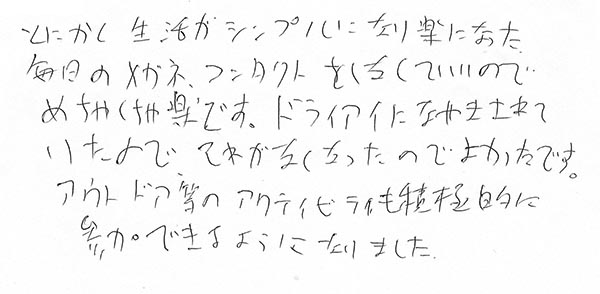 とにかく生活がシンプルになり楽になった
毎日のメガネ、コンタクトをしなくていいので
めちゃくちゃ楽です。ドライアイになやまされて
いたので それがなくなったのでよかったです。
アウトドア等のアクティビティも積極的に
参加できるようになりました